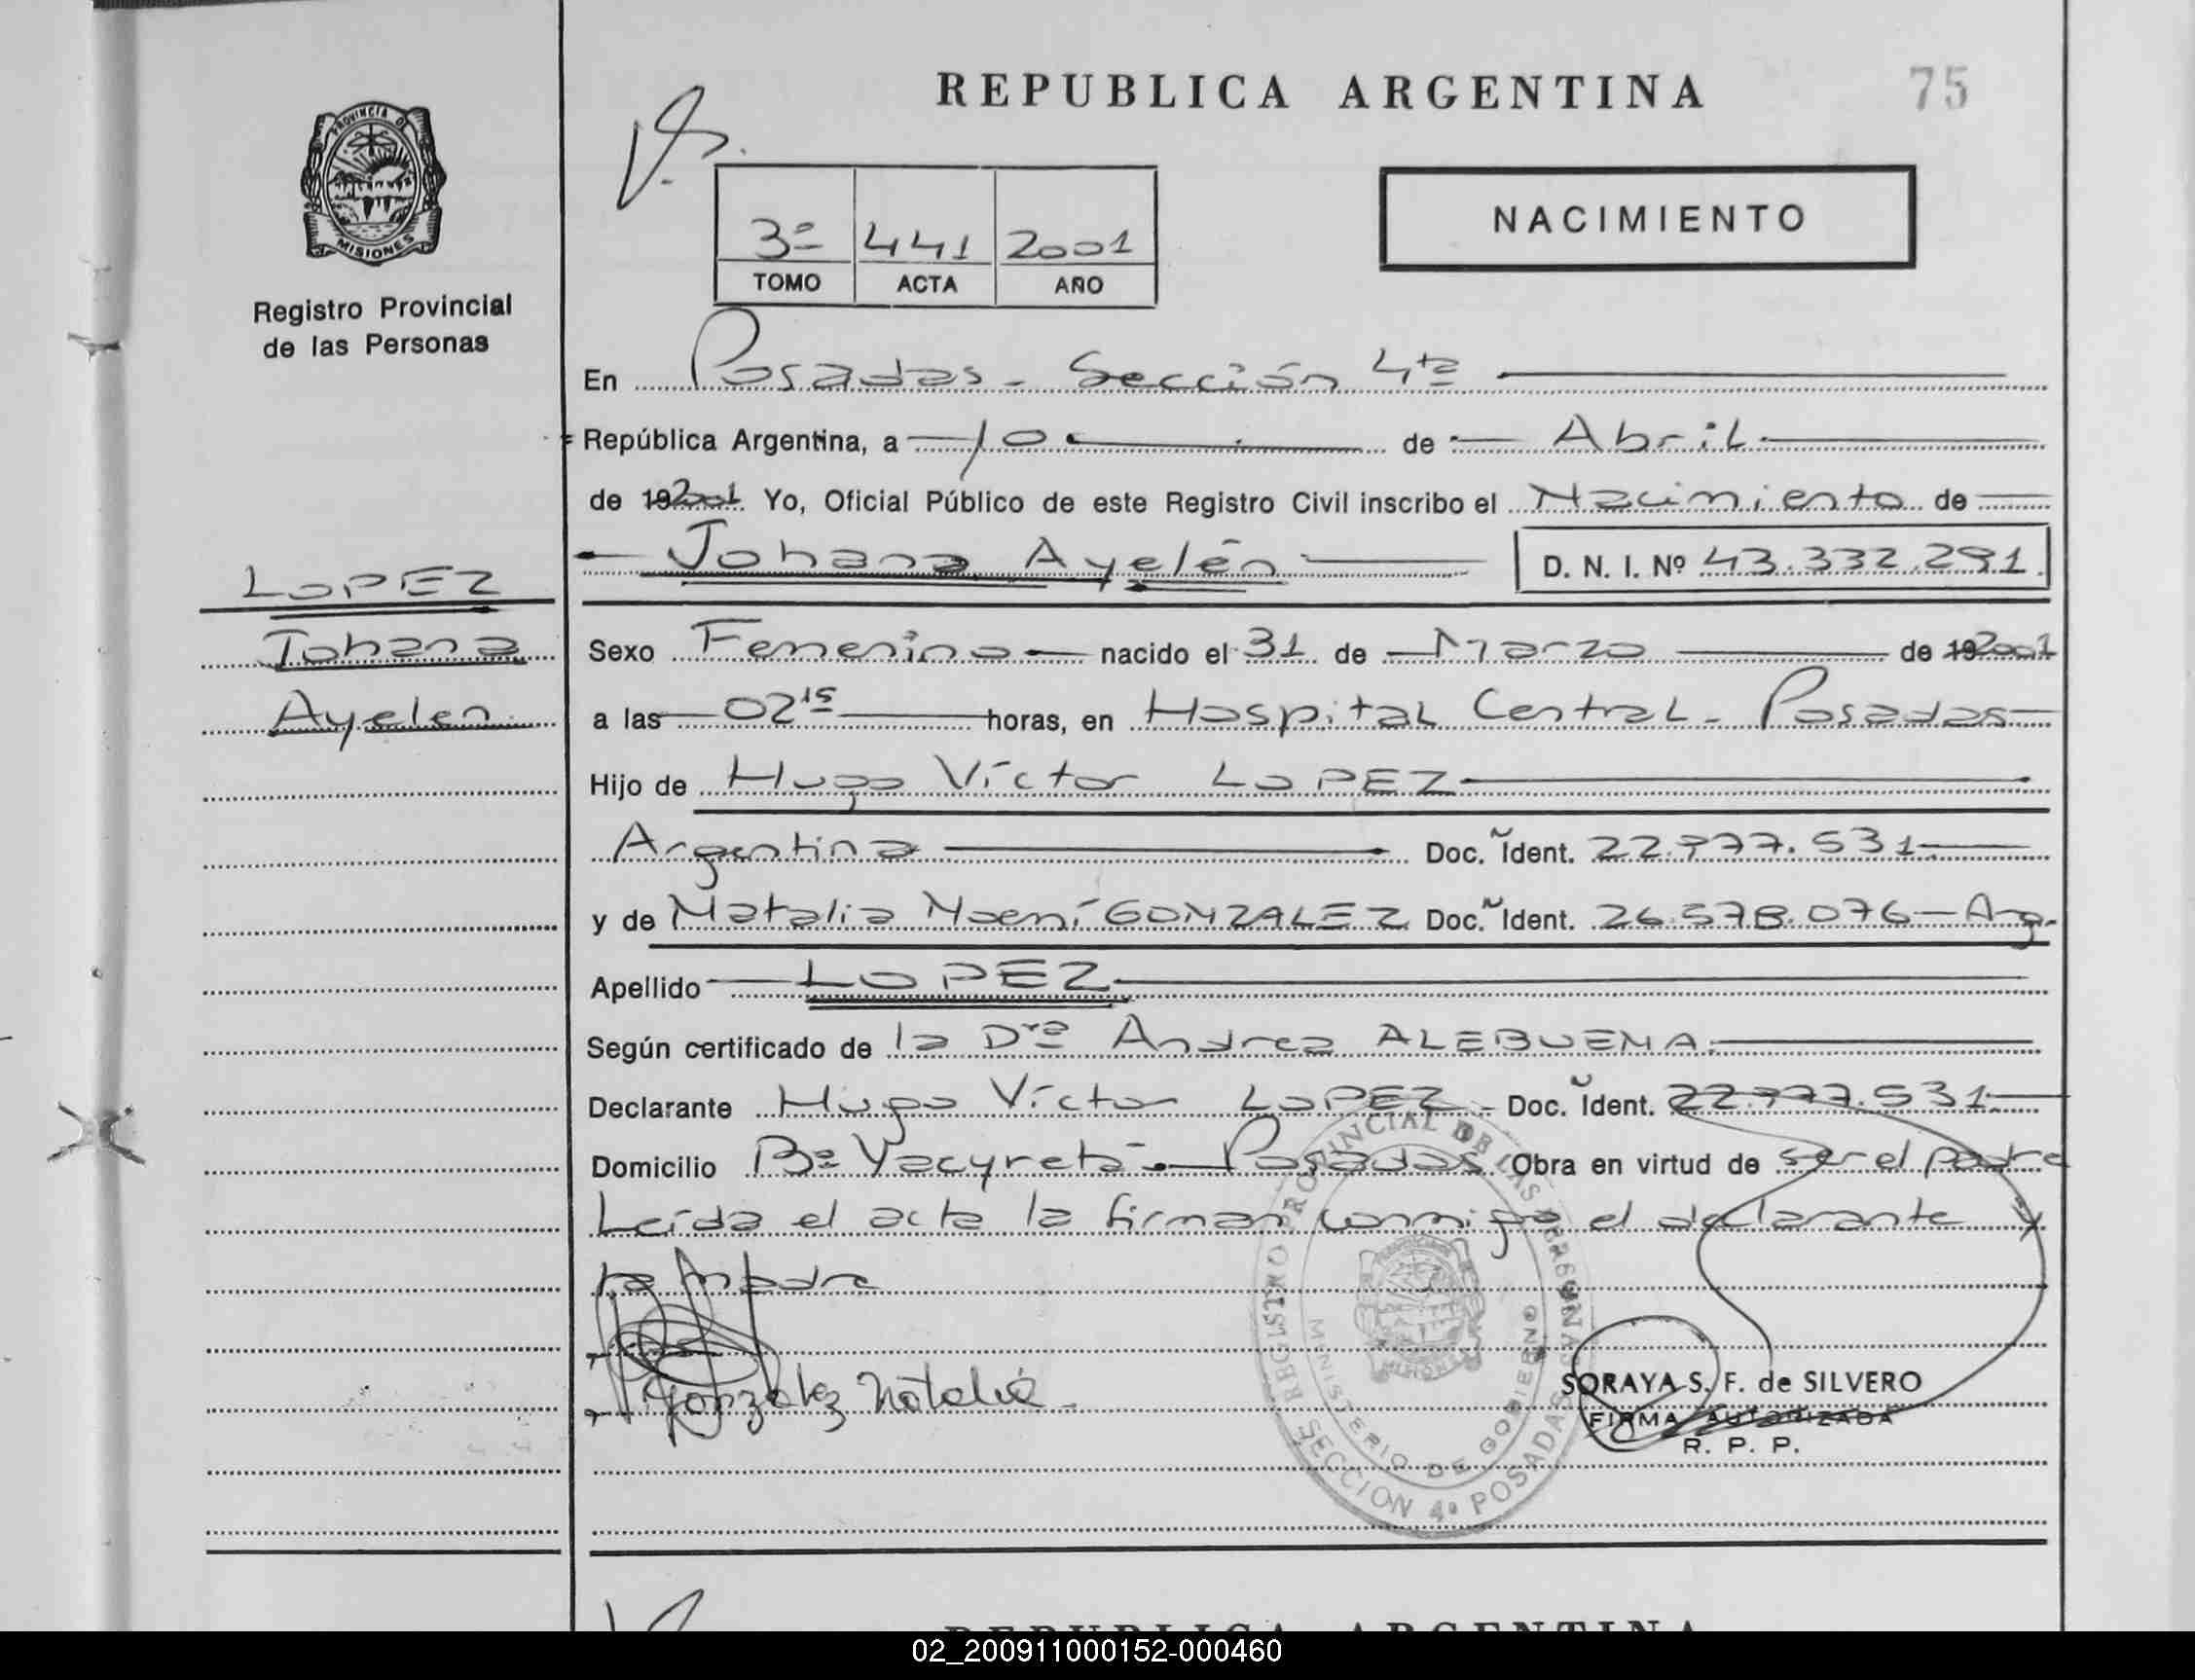 REPUBLICA ARGENTINA
75
PROVINCIA DE
MISIONES
Registro Provincial
de las Personas
3º 441 2001
TOMO ACTA AÑO
NACIMIENTO
En Posadas - Sección 4ta
República Argentina, a 10 de Abril
de 192001 Yo, Oficial Público de este Registro Civil inscribo el Nacimiento de
Johana Ayelén D. N. I. Nº 43.332.291
LOPEZ
Johana
Ayelen
Sexo Femenino nacido el 31 de Marzo de 192001
a las 02 15 horas, en Hospital Central - Posadas
Hijo de Hugo Víctor LOPEZ
Argentina Doc. Ident. 22.777.531
y de Natalia Noemí GONZALEZ Doc. Ident. 26.578.076 - Arg.
Apellido LOPEZ
Según certificado de la Dra Andrea ALEBUENA
Declarante Hugo Víctor LOPEZ - Doc. Ident. 22.777.531
Domicilio Bº Yacyretá - Posadas Obra en virtud de ser el padre
Leída el acta la firman conmigo el declarante y
la madre
Gonzalez Natalia
REGISTRO PROVINCIAL DE LAS PERSONAS
MINISTERIO DE GOBIERNO
SECCION 4ª POSADAS
SORAYA S. F. de SILVERO
FIRMA AUTORIZADA
R. P. P.
REPUBLICA ARGENTINA
02_200911000152-000460